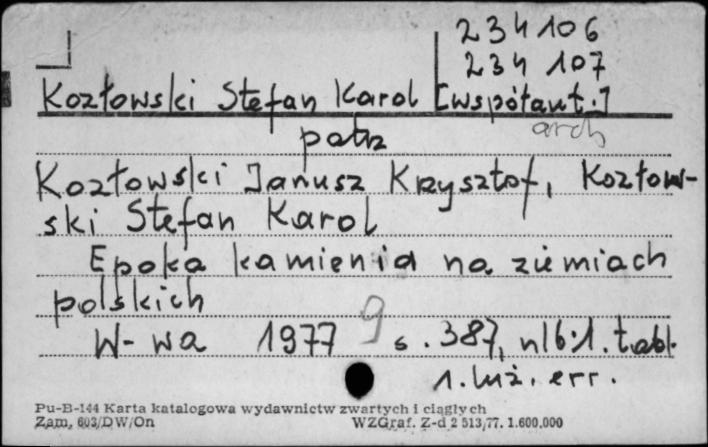 234106
234 107
Kozłowski Stefan Karol [współaut.]
arch
patrz
Kozłowski Janusz Krzysztof, Kozłow-
ski Stefan Karol
Epoka kamienia na ziemiach
polskich
W-wa 1977 g s. 387, nlb. 1. tabl.
1. luź. err.
Pu-B-144 Karta katalogowa wydawnictw zwartych i ciągłych
Zam. 603/DW/On WZGraf. Z-d 2 513/77. 1.600.000